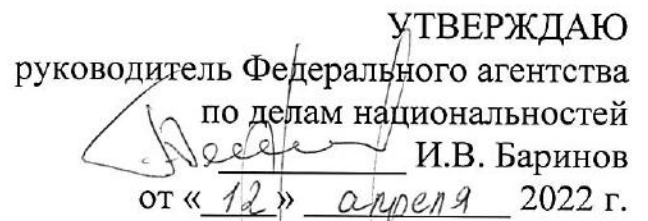 УТВЕРЖДАЮ
руководитель Федерального агентства
по делам национальностей
И.В. Баринов
от « 12 » апреля 2022 г.